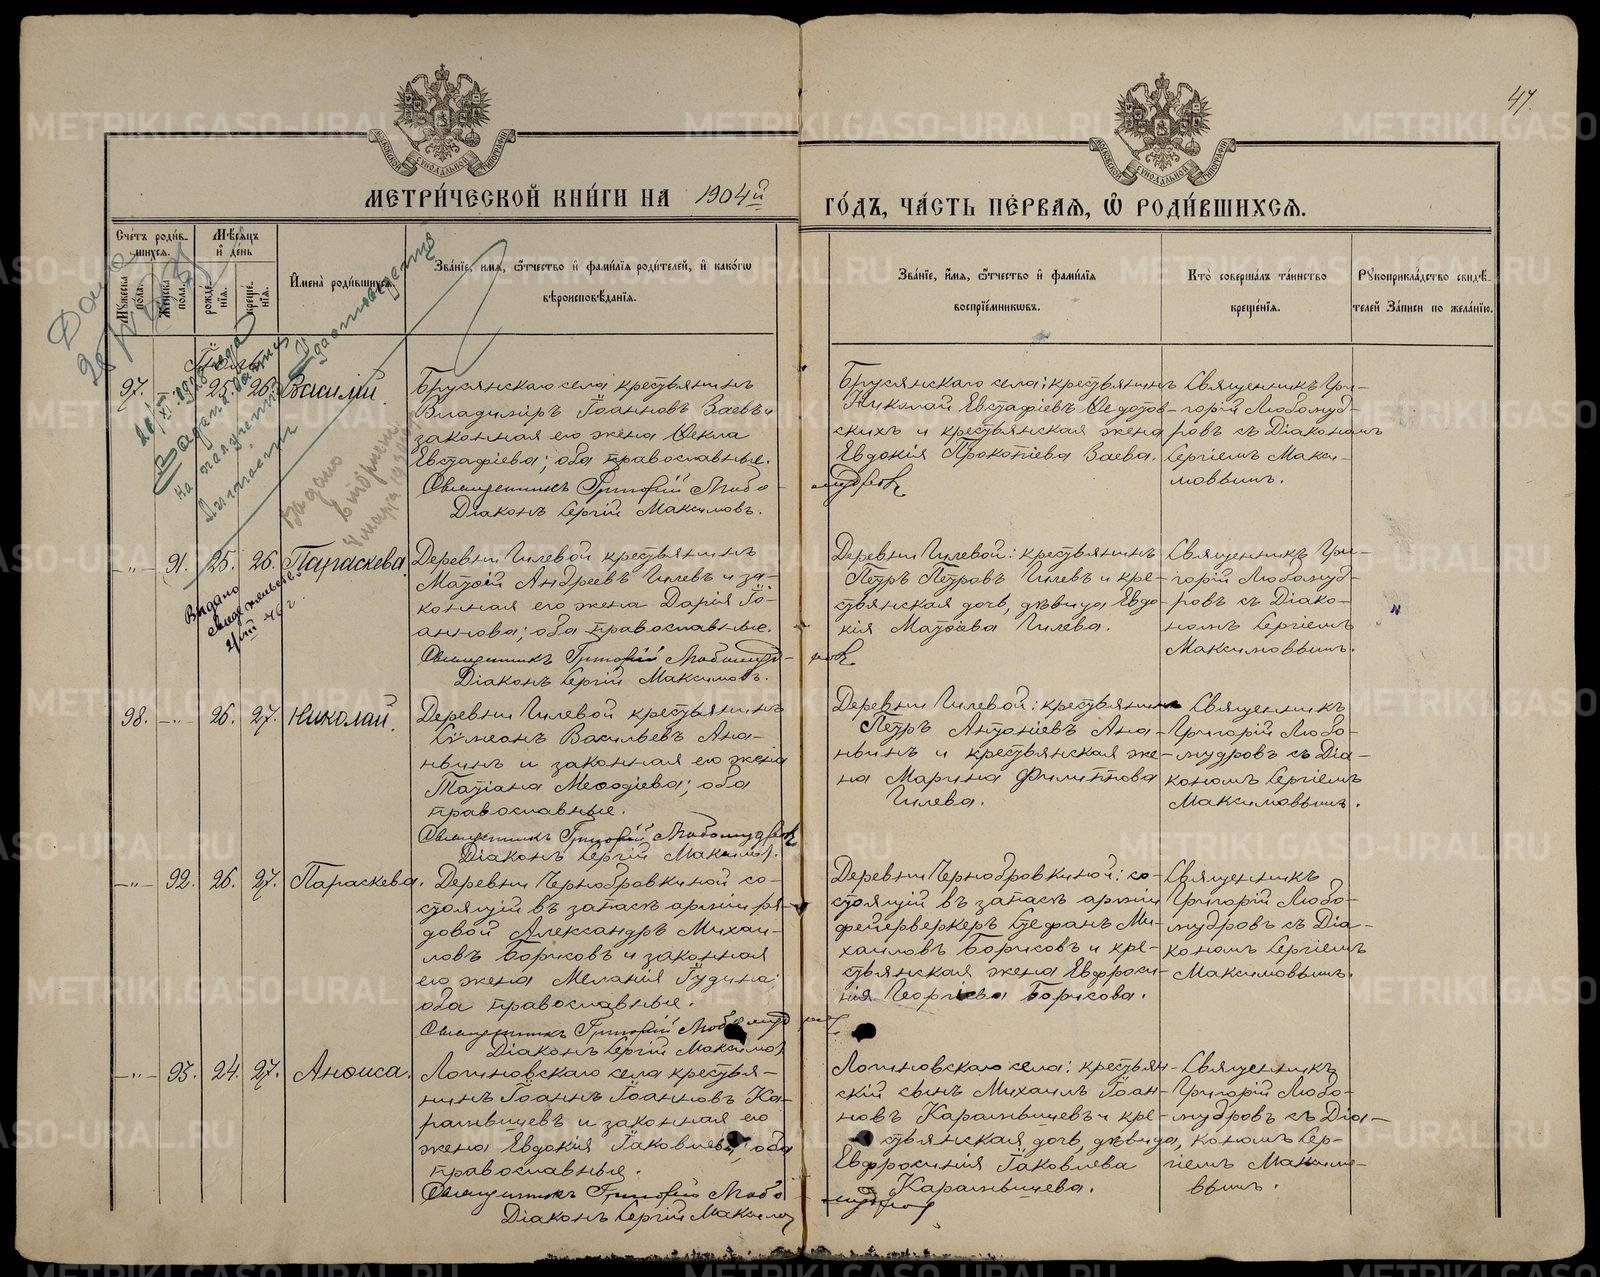 47
МОСКОВСКОЙ СѴНОДАЛЬНОЙ ТИПОГРАФІИ
МОСКОВСКОЙ СѴНОДАЛЬНОЙ ТИПОГРАФІИ
МЕТРИ́ЧЕСКОЙ КНИ́ГИ НА 1904й
ГО́ДЪ, ЧА́СТЬ ПЕ́РВАѦ, Ѡ РОДИ́ВШИХСѦ.
Сче́тъ роди́в-
шихсѧ.
Мꙋжеска по́ла.
Женска по́ла.
Мѣ́сѧцъ
и҆ де́нь
рожде-
нїѧ.
креще-
нїѧ.
И҆мена̀ роди́вшихсѧ.
Зва́нїе, имѧ, ѻ҆́тчество и҆ фами́лїѧ роди́телей, и҆ како́гѡ
вѣроисповѣ́данїѧ.
Зва́нїе, и҆́мѧ, ѻ҆́тчество и҆ фами́лїѧ
воспрїе́мникѡвъ.
Кто̀ соверша́лъ та́инство
креще́нїѧ.
Рꙋкоприкла́дство свидѣ́-
телей За́писи по жела́нїю.
Дано
Выдано
вторич
Іюль
97.
25. 26.
Василій.
Брусянскаго села крестьянинъ
Владиміръ Іоанновъ Заевъ и
законная его жена Ѳекла
Евстафіева; оба православные.
Священникъ Григорій Любо-
мудровъ
Діаконъ Сергій Максимовъ.
Брусянскаго села: крестьянинъ
Николай Евстафіевъ Ѳедотов-
скихъ и крестьянская жена
Евдокія Прокопіева Заева.
Священникъ Гри-
горій Любомуд-
ровъ съ Діакономъ
Сергіемъ Макси-
мовымъ.
-"- 91. 25. 26.
Параскева.
Выдано
свидетельств.
Деревни Гилевой крестьянинъ
Матѳій Андреевъ Гилевъ и за-
конная его жена Дарія Іо-
аннова; оба православные.
Священникъ Григорій Любомуд-
ровъ
Діаконъ Сергій Максимовъ.
Деревни Гилевой: крестьянинъ
Петръ Петровъ Гилевъ и кре-
стьянская дочь, дѣвица Евдо-
кія Матѳіева Гилева.
Священникъ Гри-
горій Любомуд-
ровъ съ Діако-
номъ Сергіемъ
Максимовымъ.
98. -"- 26. 27.
Николай.
Деревни Гилевой крестьянинъ
Сѵмеонъ Васильевъ Ана-
ньинъ и законная его жена
Татіана Меѳодіева; оба
православные.
Священникъ Григорій Любомудровъ
Діаконъ Сергій Максимов.
Деревни Гилевой: крестьянинъ
Петръ Антоніевъ Ана-
ньинъ и крестьянская же-
на Марина Филиппова
Гилева.
Священникъ
Григорій Любо-
мудровъ съ Діа-
кономъ Сергіемъ
Максимовымъ.
-"- 92. 26. 27.
Параскева.
Деревни Чернобровкиной со-
стоящій въ запасѣ арміи ря-
довой Александръ Михаи-
ловъ Борисовъ и законная
его жена Меланія Іудина;
оба православные.
Священникъ Григорій Любомуд
Діаконъ Сергій Максимов
Деревни Чернобровкиной: со-
стоящій въ запасѣ арміи
фейерверкеръ Стефанъ Ми-
хаиловъ Борисовъ и кре-
стьянская жена Евфроси-
нія Георгіева Борисова.
Священникъ
Григорій Любо-
мудровъ съ Діа-
кономъ Сергіемъ
Максимовымъ.
-"- 93. 24. 27.
Анѳиса.
Логиновскаго села крестья-
нинъ Іоаннъ Іоанновъ Ка-
рамышевъ и законная его
жена Евдокія Іаковлева; оба
православные.
Священникъ Григорій Любо
мудров
Діаконъ Сергій Максимо
Логиновскаго села: крестьян-
скій сынъ Михаилъ Іоан-
новъ Карамышевъ и кре-
стьянская дочь, дѣвица,
Евфросинія Іаковлева
Карамышева.
Священникъ
Григорій Любо-
мудровъ съ Діа-
кономъ Сер-
гіемъ Максимо-
вымъ.
METRIKI.GASO-URAL.RU